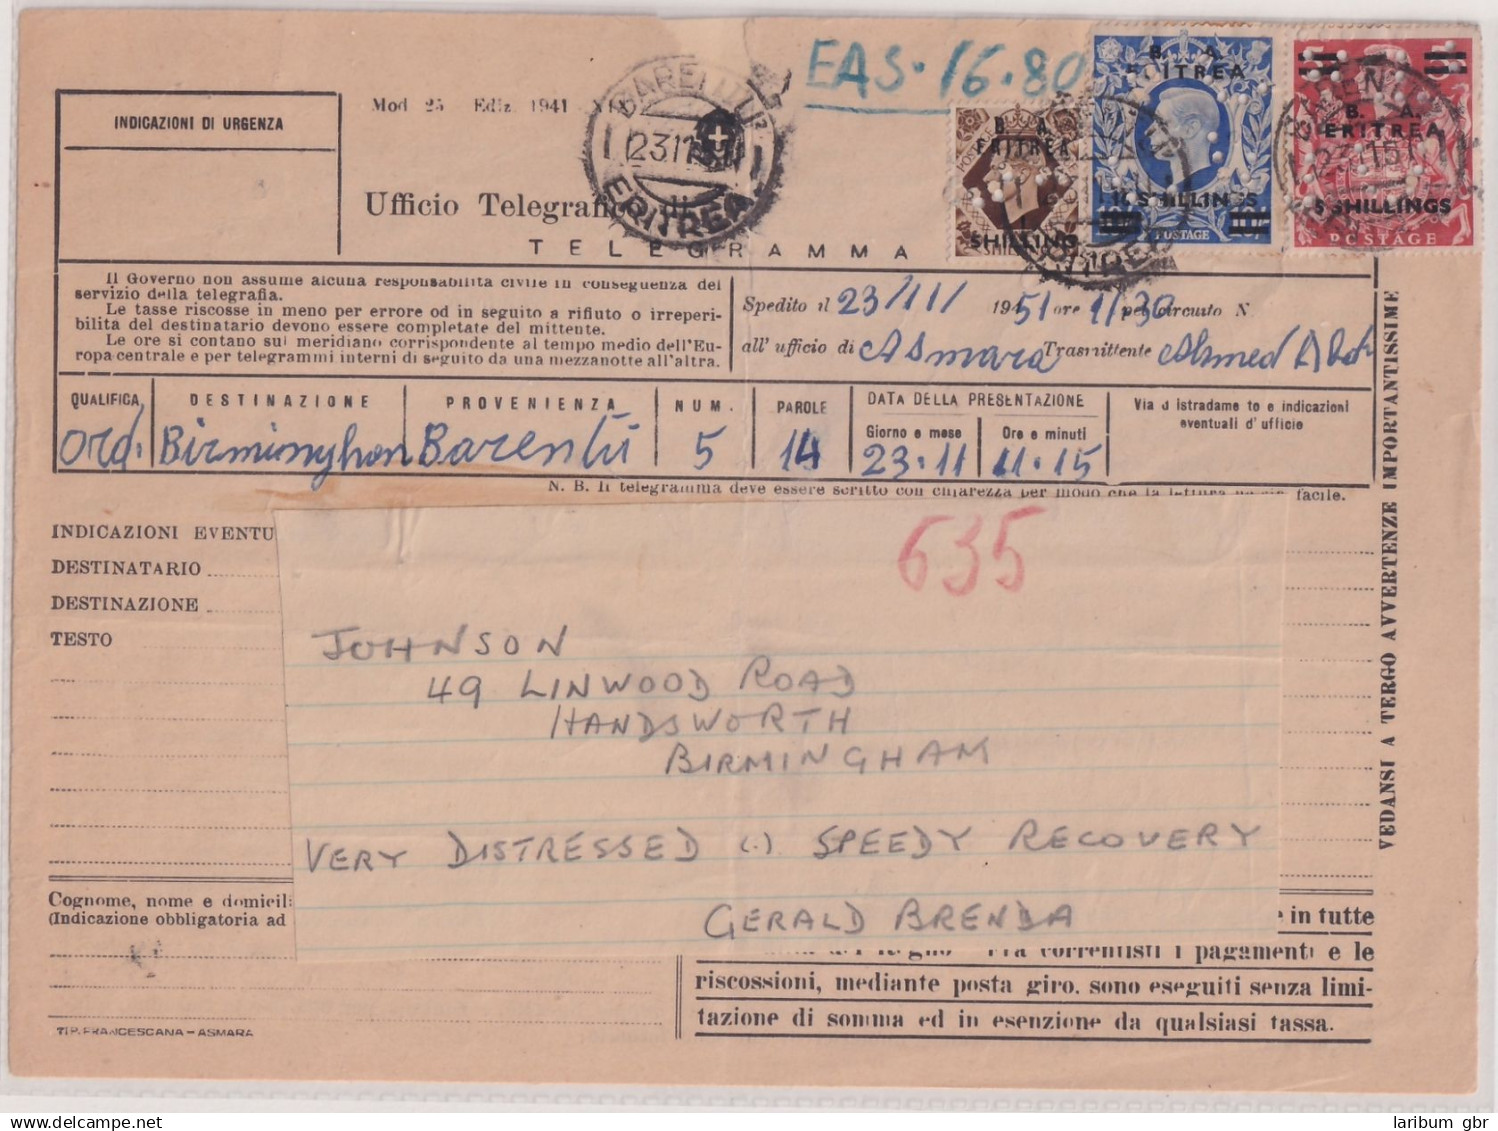 EAS. 16.80
INDICAZIONI DI URGENZA
Mod 25 Ediz. 1941
BARENTU
23 11 51
ERITREA
Ufficio Telegrafico
TELEGRAMMA
B. A.
ERITREA
SHILLING
B. A.
ERITREA
10 SHILLINGS
POSTAGE
B. A.
ERITREA
5 SHILLINGS
POSTAGE
Il Governo non assume alcuna responsabilita civile in conseguenza del
servizio della telegrafia.
Le tasse riscosse in meno per errore od in seguito a rifiuto o irreperi-
bilita del destinatario devono essere completate del mittente.
Le ore si contano sul meridiano corrispondente al tempo medio dell'Eu-
ropa centrale e per telegrammi interni di seguito da una mezzanotte all'altra.
Spedito il 23/11/ 1951 ore 11/30 pel circuito N.
all' ufficio di Asmara Trasmittente Ahmed
QUALIFICA DESTINAZIONE PROVENIENZA NUM. PAROLE DATA DELLA PRESENTAZIONE
Giorno e mese Ore e minuti
Via d istradame to e indicazioni
eventuali d' ufficio
Ord. Birminghon Barentù 5 14 23.11 11.15
N. B. Il telegramma deve essere scritto con chiarezza per modo che la lettura ne sia facile.
VEDANSI A TERGO AVVERTENZE IMPORTANTISSIME
INDICAZIONI EVENTU
DESTINATARIO
DESTINAZIONE
TESTO
635
JOHNSON
49 LINWOOD ROAD
HANDSWORTH
BIRMINGHAM
VERY DISTRESSED (.) SPEEDY RECOVERY
GERALD BRENDA
Cognome, nome e domicil
(Indicazione obbligatoria ad
e in tutte
Regno Fra correntisti i pagamenti e le
riscossioni, mediante posta giro. sono eseguiti senza limi-
tazione di somma ed in esenzione da qualsiasi tassa.
TIP. FRANCESCANA - ASMARA
laribum gbr www.delcampe.net